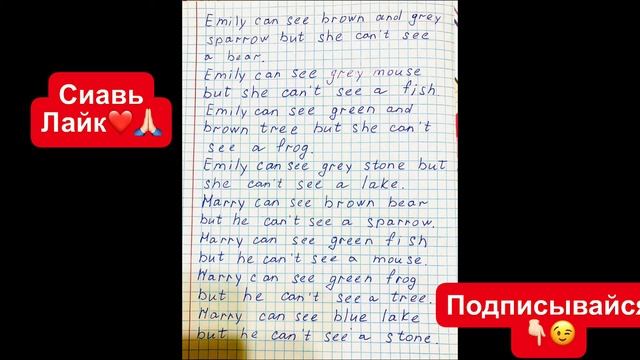 Emily can see brown and grey
sparrow but she can't see
a bear.
Emily can see grey mouse
but she can't see a fish
Emily can see green and
brown tree but she can't
see a frog.
Emily can see grey stone but
she can't see a lake.
Marry can see brown bear
but he can't see a sparrow.
Marry can see green fish
but he can't see a mouse.
Marry can see green frog
but he can't see a tree.
Marry can see blue lake
but he can't see a stone.
Сиавь
Лайк❤️🙏🏻
Подписывайся
👇🏻😉